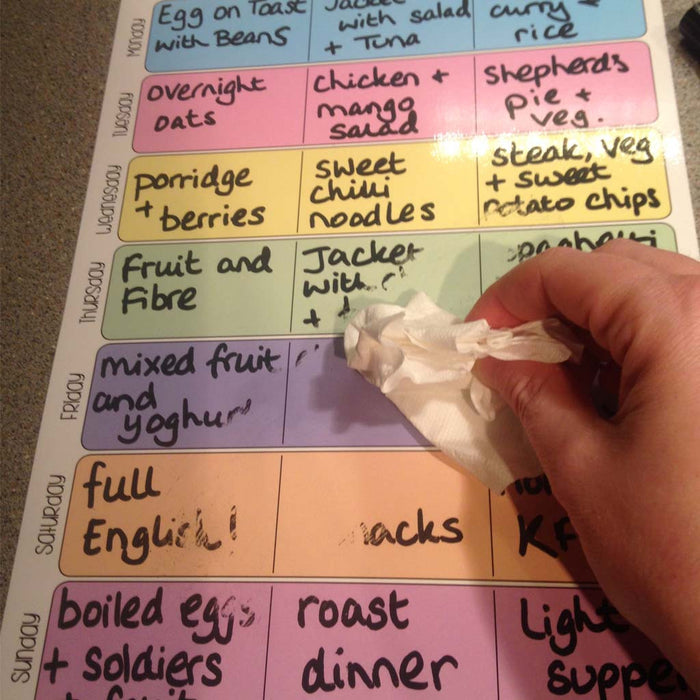 Monday
Egg on Toast
with Beans
Jacket
with salad
+ Tuna
curry +
rice
Tuesday
overnight
oats
chicken +
mango
salad
shepherd's
pie +
veg.
Wednesday
porridge
+ berries
sweet
chilli
noodles
steak, veg
+ sweet
potato chips
Thursday
Fruit and
Fibre
Jacket
with
+
spaghetti
Friday
mixed fruit
and
yoghur
Saturday
full
English!
nacks
KF
Sunday
boiled eggs
+ soldiers
+ fruit
roast
dinner
Light
suppe